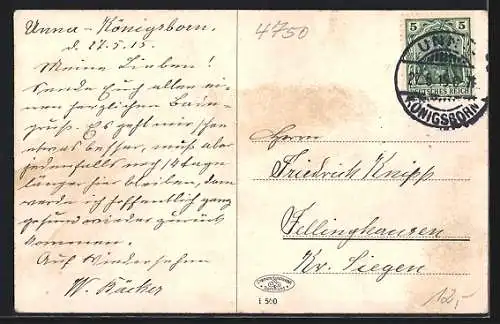 Unna-Königsborn,
d. 27.5.15.
Meine Lieben!
Sende Euch allen ei-
nen herzlichen Bade-
gruß. Es geht mir schon
etwas besser, muß aber
jedenfalls noch 14 Tage
länger hier bleiben, dann
werde ich hoffentlich ganz
gesund wieder zurück
kommen.
Auf Wiedersehen
W. Bäcker
4750
5 5
UNNA
DEUTSCHES REICH
KÖNIGSBORN
Herrn
Friedrich Knipp
Fellinghausen
Kr. Siegen
1 500
12,-